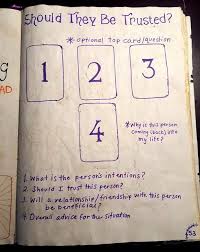 Should They Be Trusted?
* optional top card/question
1 2 3
4
*Why is this person
coming (back) into
my life?
1. What is the person's intentions?
2. Should I trust this person?
3. Will a relationship/friendship with this person
be beneficial?
4. Overall advice for the situation
53
g
AD